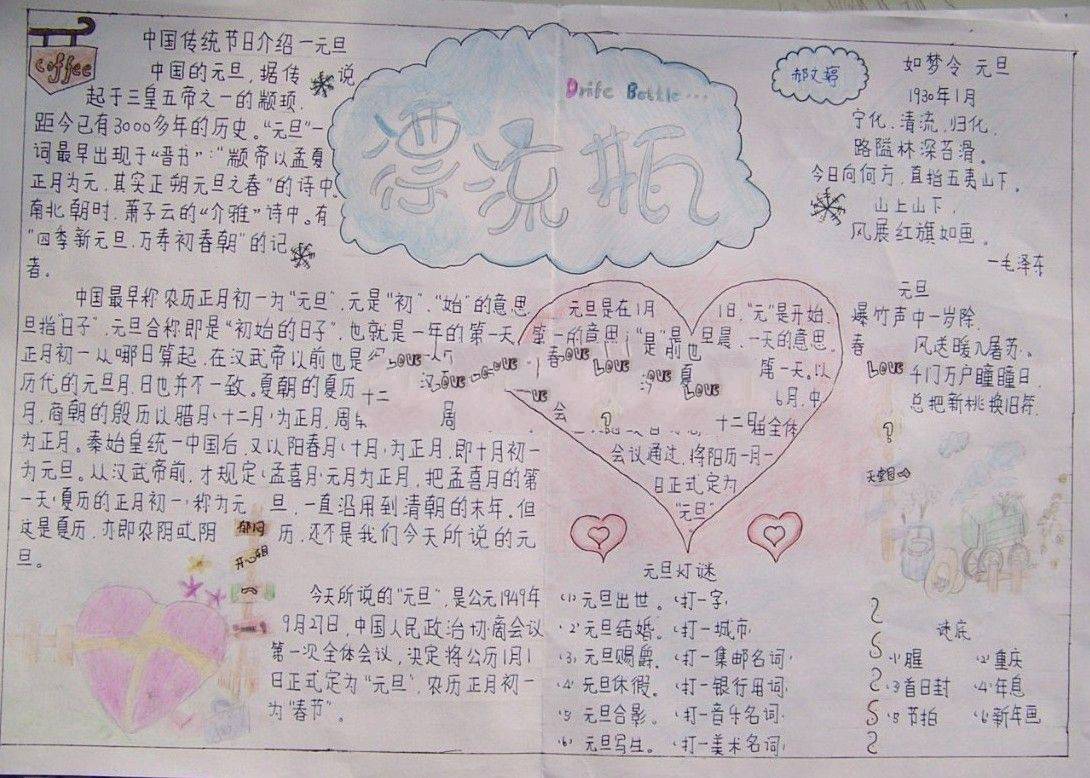 coffee
中国传统节日介绍—元旦
中国的元旦,据传说
起于三皇五帝之一的颛顼,
距今已有3000多年的历史。“元旦”一
词最早出现于“晋书”:“颛帝以孟夏
正月为元,其实正朔元旦之春”的诗中
南北朝时,萧子云的“介雅”诗中。有
“四季新元旦,万寿初春朝”的记
者。
Drife Bottle...
漂流瓶
郝文婷
如梦令 元旦
1930年1月
宁化、清流、归化,
路隘林深苔滑。
今日向何方,直指五夷山下。
山上山下,
风展红旗如画。
—毛泽东
中国最早称农历正月初一为“元旦”,元是“初”、“始”的意思
旦指“日子”,元旦合称即是“初始的日子”,也就是一年的第一天
正月初一从哪日算起,在汉武帝以前也是
历代的元旦月、日也并不一致。夏朝的夏历
月,商朝的殷历以腊月(十二月)为正月,周
为正月。秦始皇统一中国后,又以阳春月(十月)为正月,即十月初一
为元旦。从汉武帝前,才规定(孟喜月)元月为正月,把孟喜月的第
一天(夏历的正月初一)称为元旦,一直沿用到清朝的末年。但
这是夏历,亦即农阴或阴历,还不是我们今天所说的元
旦。
元旦是在1月1日,“元”是开始,
第一的意思,“旦”是早晨、一天的意思。
第一天。以
6月,中
十二届全体
会议通过,将阳历一月一
日正式定为
“元旦”
Love
Love
Love
Love
Love
Love
元旦
爆竹声中一岁除,
春风送暖入屠苏。
千门万户瞳瞳日,
总把新桃换旧符。
Love
今天所说的“元旦”,是公元1949年
9月27日,中国人民政治协商会议
第一次全体会议,决定将公历1月1
日正式定为“元旦”,农历正月初一
为“春节”。
元旦灯谜
(1)元旦出世。(打一字)
(2)元旦结婚。(打一城市)
(3)元旦赐爵。(打一集邮名词)
(4)元旦休假。(打一银行用词)
(5)元旦合影。(打一音乐名词)
(6)元旦写生。(打一美术名词)
谜底
(1)腥 (2)重庆
(3)首日封 (4)年息
(5)节拍 (6)新年画